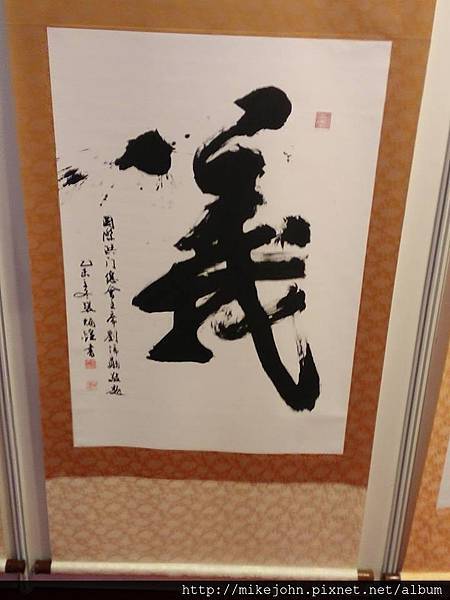 義
國際洪門總會主席劉沛勛敬題
乙未年 書
http://mikejohn.pixnet.net/album